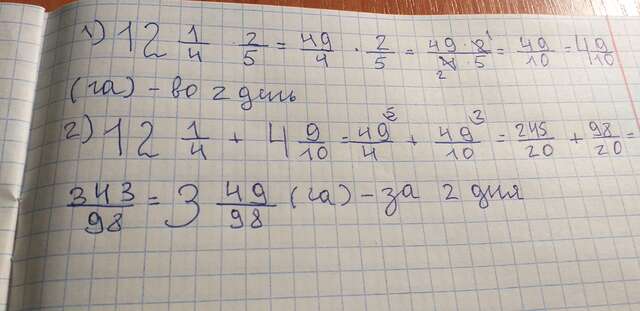 1) 12 1/4 · 2/5 = 49/4 · 2/5 = 49·2/4·5 = 49/10 = 4 9/10
(га) - во 2 день
2) 12 1/4 + 4 9/10 = 49/4 + 49/10 = 245/20 + 98/20 =
343/98 = 3 49/98 (га) - за 2 дня